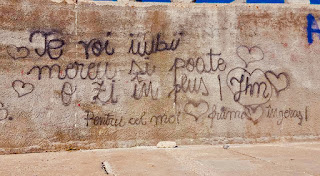 Te voi iubi
mereu și poate
o zi în plus! Jhm
Pentru cel mai frumos îngeraș!